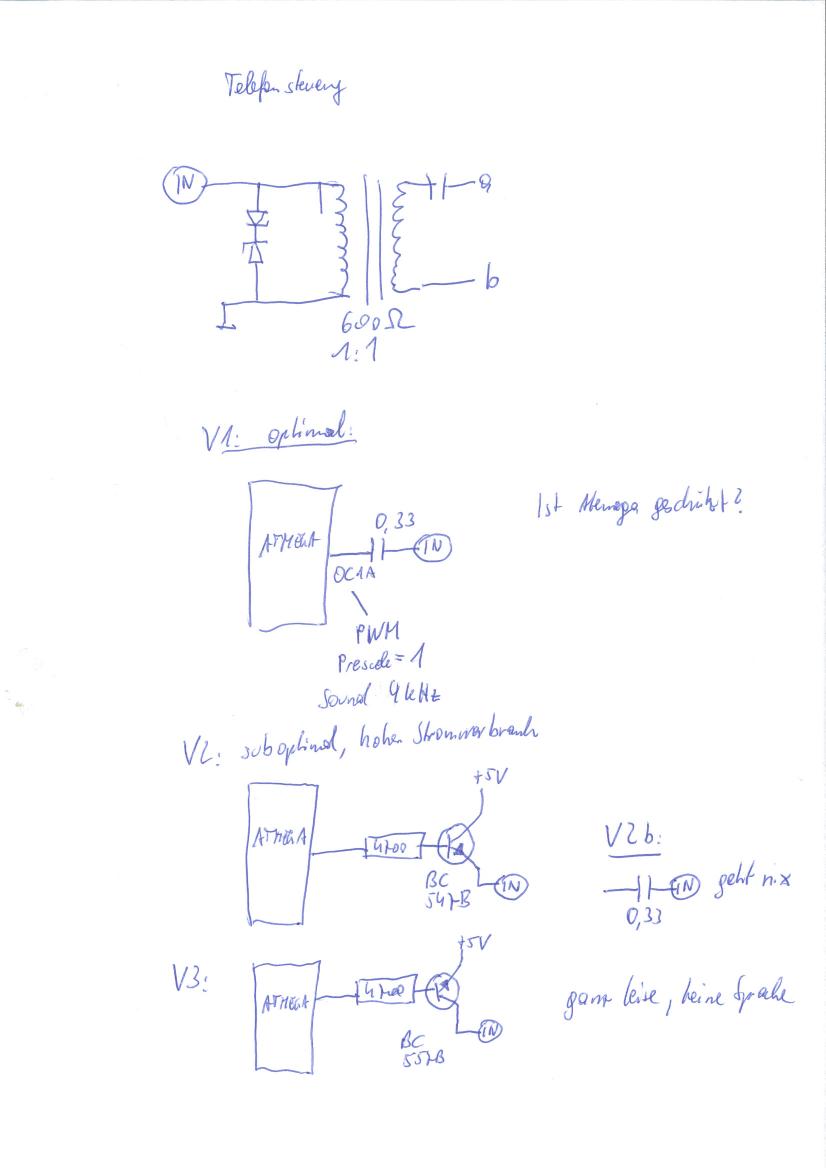 Telefonsteuerung
IN
a
b
600Ω
1:1
V1: optimal:
Ist Atmega geschützt?
ATMEGA
0,33
IN
OC1A
PWM
Prescale = 1
Sound 4kHz
V2: suboptimal, hoher Stromverbrauch
+5V
ATMEGA
4700
BC
547B
IN
V2b:
IN
geht nix
0,33
V3:
+5V
ATMEGA
4700
BC
557B
IN
ganz leise, keine Sprache